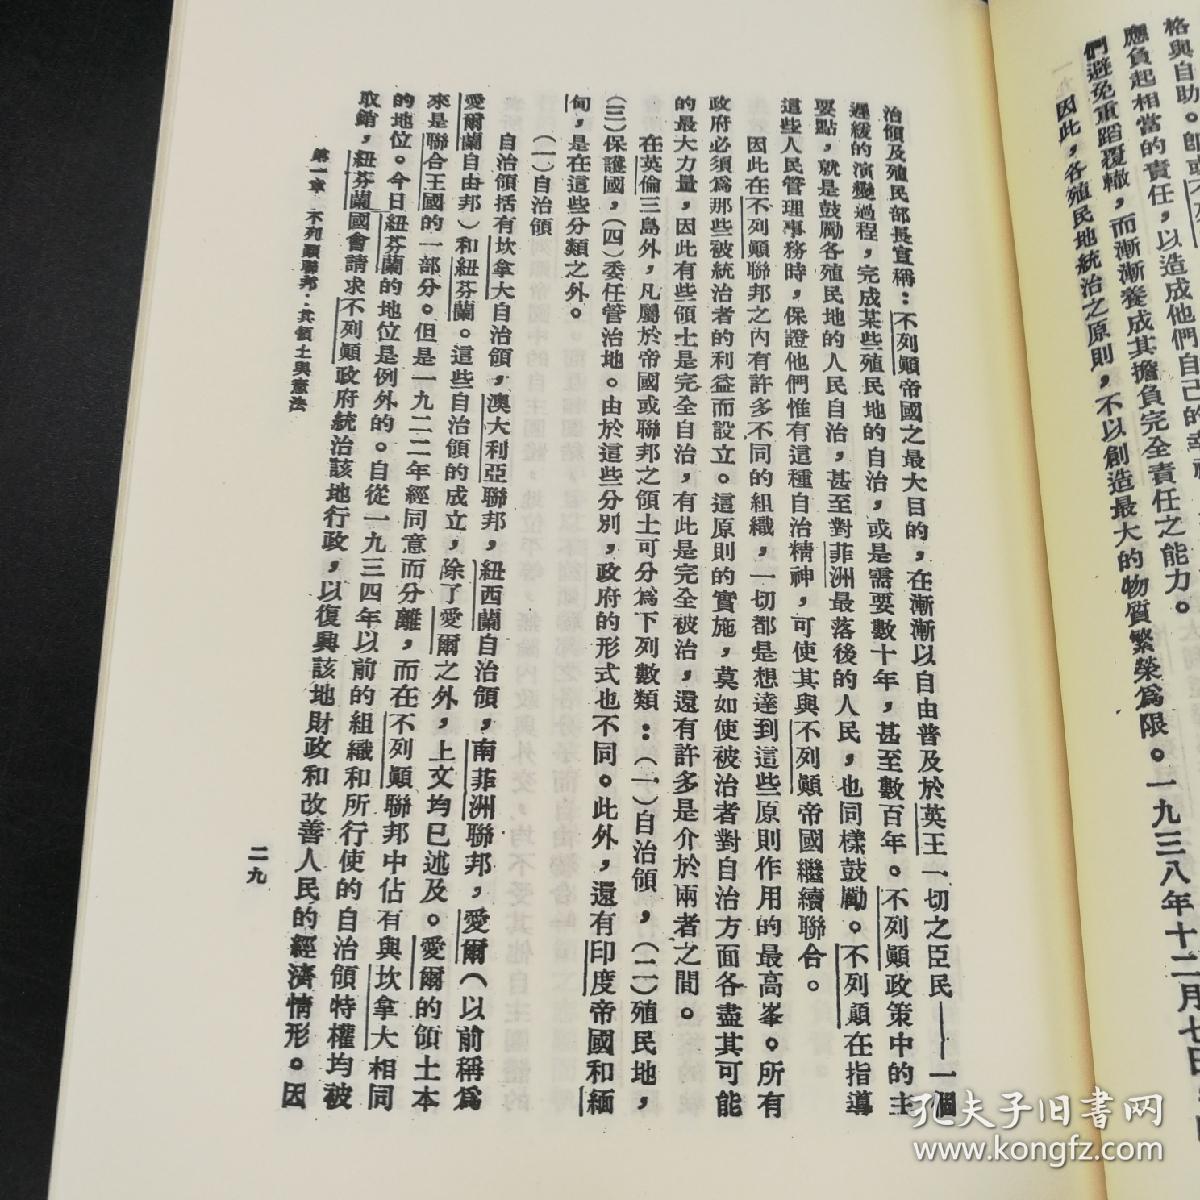 格與自助。
應負起相當的責任，以造成他們自己的幸
們避免重蹈覆轍，而漸漸養成其擔負完全責任之能力。
因此，各殖民地統治之原則，不以創造最大的物質繁榮爲限。一九三八年十二月七日
治領及殖民部長宣稱：不列顚帝國之最大目的，在漸漸以自由普及於英王一切之臣民——一個
遲緩的演變過程，完成某些殖民地的自治，或是需要數十年，甚至數百年。不列顚政策中的主
要點，就是鼓勵各殖民地的人民自治，甚至對菲洲最落後的人民，也同樣鼓勵。不列顚在指導
這些人民管理事務時，保證他們惟有這種自治精神，可使其與不列顚帝國繼續聯合。
因此在不列顚聯邦之內有許多不同的組織，一切都是想達到這些原則作用的最高峯。所有
政府必須爲那些被統治者的利益而設立。這原則的實施，莫如使被治者對自治方面各盡其可能
的最大力量，因此有些領土是完全自治，有此是完全被治，還有許多是介於兩者之間。
在英倫三島外，凡屬於帝國或聯邦之領土可分爲下列數類：（一）自治領，（二）殖民地，
（三）保護國，（四）委任管治地。由於這些分別，政府的形式也不同。此外，還有印度帝國和緬
甸，是在這些分類之外。
（一）自治領
自治領括有坎拿大自治領，澳大利亞聯邦，紐西蘭自治領，南菲洲聯邦，愛爾（以前稱爲
愛爾蘭自由邦）和紐芬蘭。這些自治領的成立，除了愛爾之外，上文均已述及。愛爾的領土本
來是聯合王國的一部分。但是一九二二年經同意而分離，而在不列顚聯邦中佔有與坎拿大相同
的地位。今日紐芬蘭的地位是例外的。自從一九三四年以前的組織和所行使的自治領特權均被
取銷，紐芬蘭國會請求不列顚政府統治該地行政，以復興該地財政和改善人民的經濟情形。因
第一章 不列顚聯邦：其領土與憲法
二九
孔夫子旧书网
www.kongfz.com